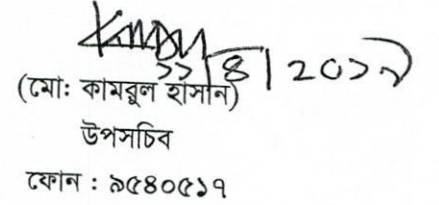 ২২|৪|২০১৯
(মো: কামরুল হাসান)
উপসচিব
ফোন : ৯৫৪০৫১৭